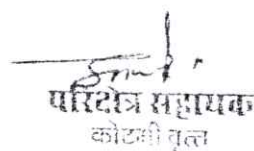 परिक्षेत्र सहायक
कोटमी वृत्त